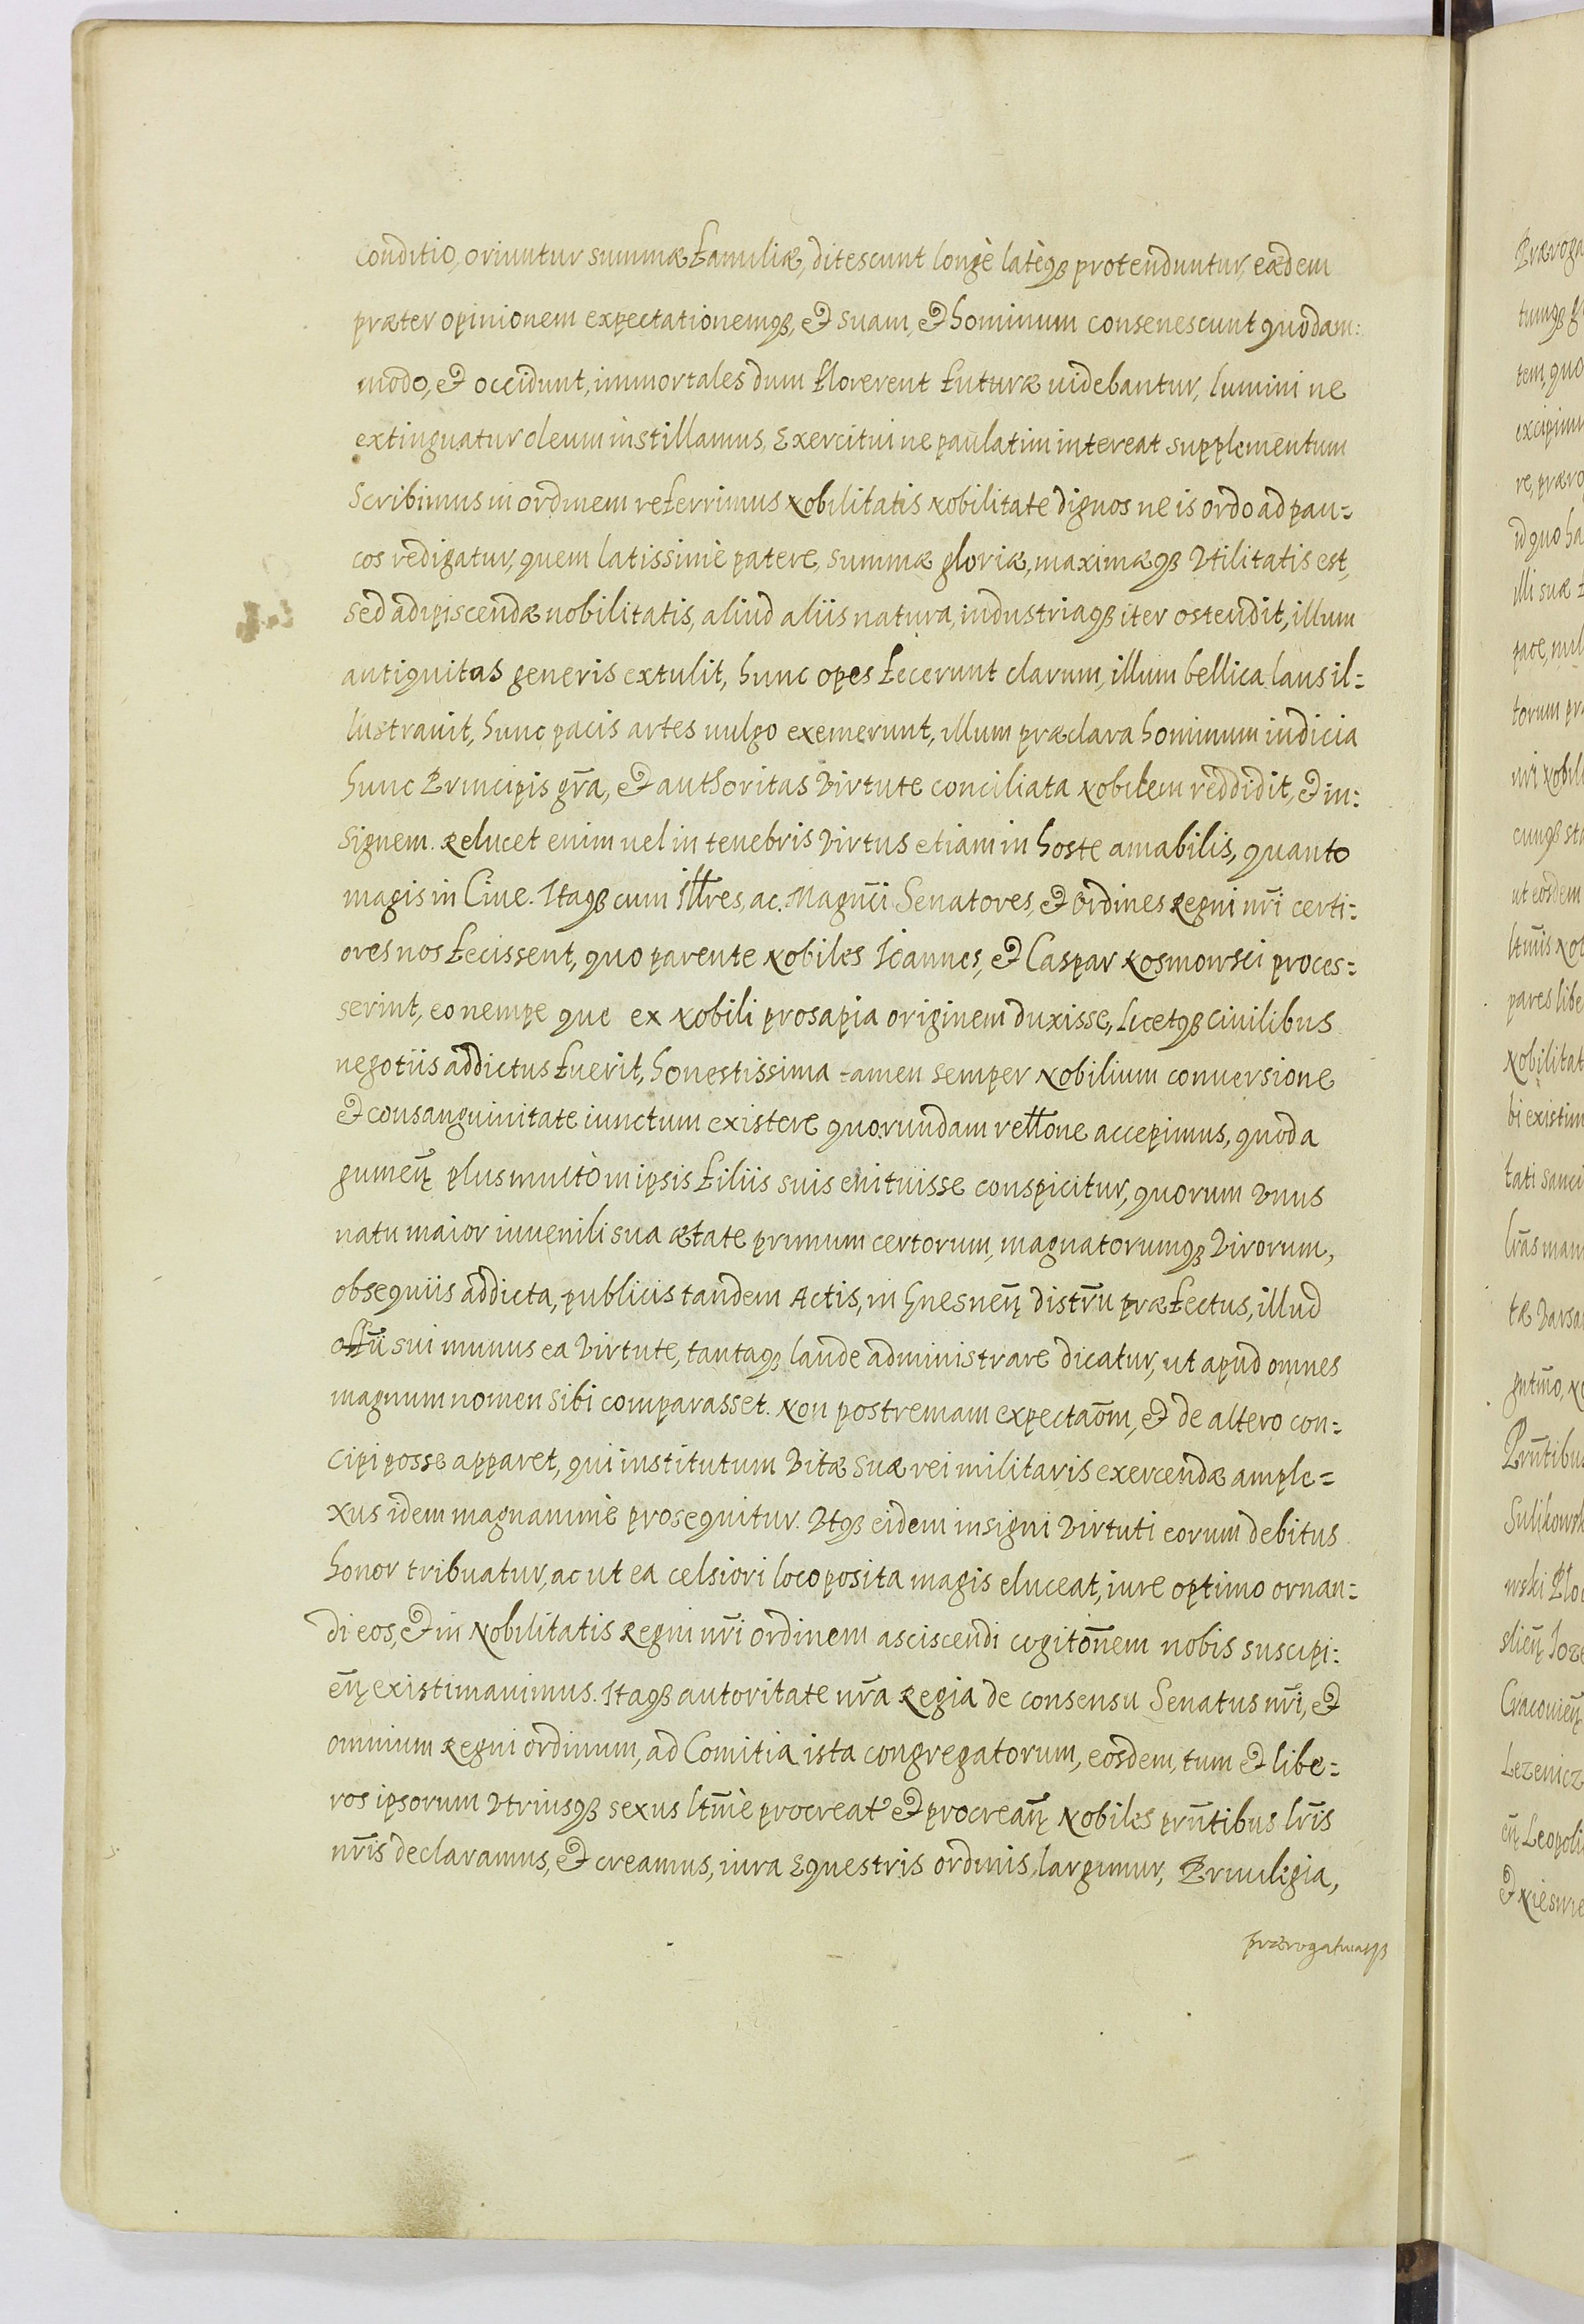 conditio, oriuntur summæ familiæ, ditescunt longè latèq₃ protenduntur, eædem
præter opinionem expectationemq₃, & suam, & hominum consenescunt quodam:
modo, & occidunt, immortales dum florerent futuræ uidebantur, lumini ne
extinguatur oleum instillamus, Exercitui ne paulatim intereat supplementum
scribimus in ordinem referrimus Nobilitatis Nobilitate dignos ne is ordo ad pau=
cos redigatur, quem latissimè patere, summæ gloriæ, maximæq₃ Vtilitatis est,
sed adipiscendæ nobilitatis, aliud aliis natura, industriaq₃ iter ostendit, illum
antiquitas generis extulit, hunc opes fecerunt clarum, illum bellica laus il=
lustrauit, hunc pacis artes uulgo exemerunt, illum præclara hominum iudicia
hunc Principis gr̃a, & authoritas Virtute conciliata Nobilem reddidit, & in:
signem. Relucet enim uel in tenebris Virtus etiam in hoste amabilis, quanto
magis in Ciue. Itaq₃ cum Illres, ac. Magnc̃i Senatores, & Ordines Regni nr̃i certi:
ores nos fecissent, quo parente Nobiles Ioannes, & Caspar Kosmowsci proces=
serint, eo nempe que ex Nobili prosapia originem duxisse, licetq₃ ciuilibus
negotiis addictus fuerit, honestissima tamen semper Nobilium conuersione
& consanguinitate iunctum existere quorundam rellone accepimus, quod a
gumeñ plus multò in ipsis filiis suis enituisse conspicitur, quorum Vnus
natu maior iuuenili sua ætate primum certorum, magnatorumq₃ Virorum,
obsequiis addicta, publicis tandem Actis, in Gnesneñ distr̃u præfectus, illud
offii sui munus ea Virtute, tantaq₃ laude administrare dicatur, ut apud omnes
magnum nomen sibi comparasset. Non postremam expectaõm, & de altero con=
cipi posse apparet, qui institutum Vitæ suæ rei militaris exercendæ ample=
xus idem magnanimè prosequitur. Vtq₃ eidem insigni Virtuti eorum debitus
honor tribuatur, ac ut ea celsiori loco posita magis eluceat, iure optimo ornan=
di eos, & in Nobilitatis Regni nr̃i ordinem asciscendi cogitõnem nobis suscipi:
eñ existimauimus. Itaq₃ autoritate nr̃a Regia de consensu Senatus nr̃i, &
omnium Regni ordinum, ad Comitia ista congregatorum, eosdem, tum & libe=
ros ipsorum Vtriusq₃ sexus ltm̃è procreat & procreañ Nobiles prñtibus lr̃is
nr̃is declaramus, & creamus, iura Equestris ordinis largimur, Priuilegia,
prærogatiuasq₃